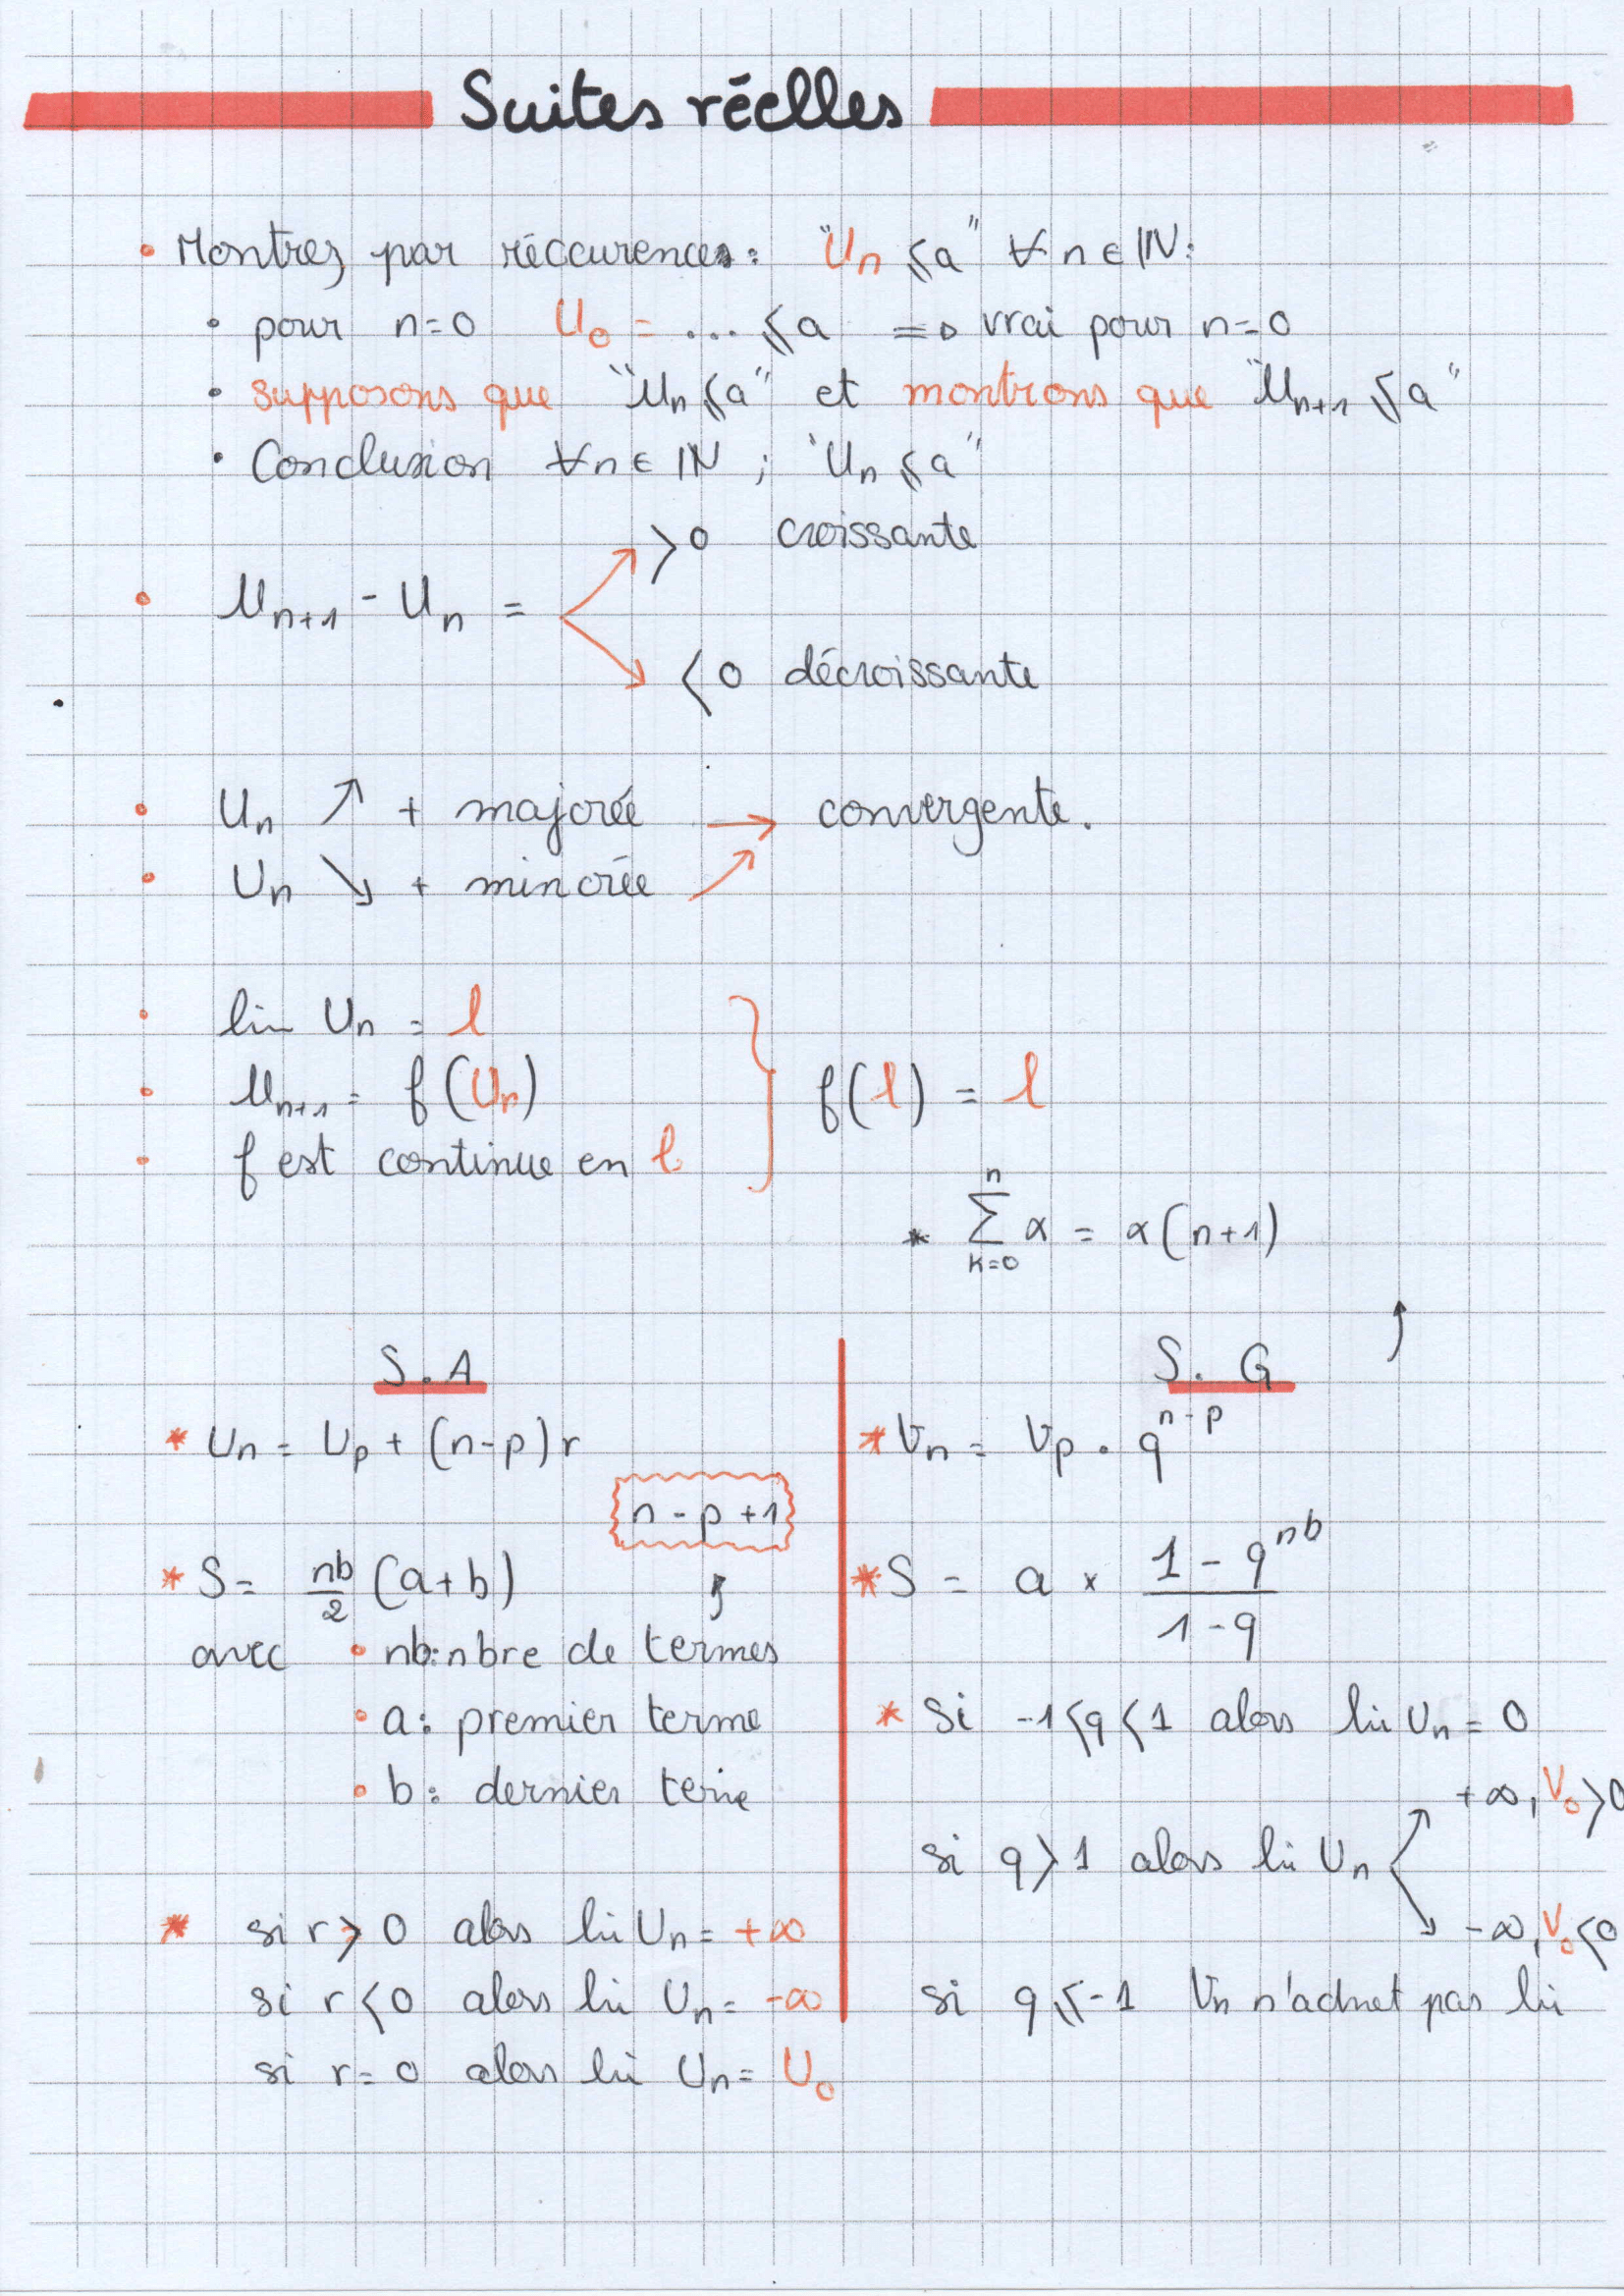 Suites réelles
• Montrez par réccurences : "Un ⩽ a" ∀ n ∈ IN :
• pour n=0 U₀ = ... ⩽ a => vrai pour n=0
• supposons que "Un ⩽ a" et montrons que "Un+1 ⩽ a"
• Conclusion ∀n ∈ IN ; "Un ⩽ a"
> 0 croissante
• Un+1 - Un =
< 0 décroissante
• Un ↗ + majorée → convergente.
• Un ↘ + minorée ↗
• lim Un = l
• Un+1 = f(Un) } f(l) = l
• f est continue en l
* n∑k=0 α = α(n+1)
S.A
* Un = Up + (n-p)r
n-p+1
* S = nb/2 (a+b)
avec • nb: nbre de termes
• a : premier terme
• b : dernier terme
* si r > 0 alors lim Un = +∞
si r < 0 alors lim Un = -∞
si r = 0 alors lim Un = U₀
S. G
* Vn = Vp . q^n-p
* S = a × 1 - q^nb / 1 - q
* Si -1 < q < 1 alors lim Un = 0
+∞, V₀ > 0
si q > 1 alors lim Un
-∞, V₀ < 0
si q ⩽ -1 Vn n'admet pas lim